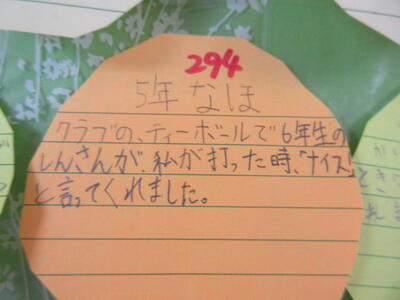 294
5年 なほ
クラブの、ティーボールで6年生の
しんさんが、私が打った時、「ナイス」
と言ってくれました。